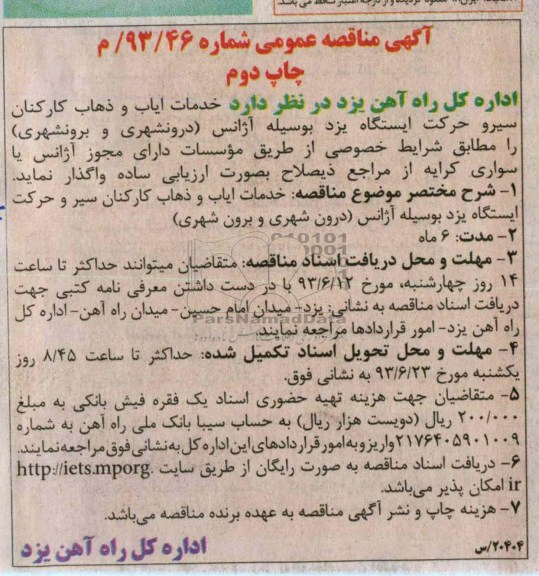 آگهی مناقصه عمومی شماره ۹۳/۴۶/ م
چاپ دوم
اداره کل راه آهن یزد در نظر دارد خدمات ایاب و ذهاب کارکنان
سیرو حرکت ایستگاه یزد بوسیله آژانس (درونشهری و برونشهری)
را مطابق شرایط خصوصی از طریق مؤسسات دارای مجوز آژانس یا
سواری کرایه از مراجع ذیصلاح بصورت ارزیابی ساده واگذار نماید.
۱- شرح مختصر موضوع مناقصه: خدمات ایاب و ذهاب کارکنان سیر و حرکت
ایستگاه یزد بوسیله آژانس (درون شهری و برون شهری)
۲- مدت: ۶ ماه
۳- مهلت و محل دریافت اسناد مناقصه: متقاضیان میتوانند حداکثر تا ساعت
۱۴ روز چهارشنبه، مورخ ۹۳/۶/۱۲ با در دست داشتن معرفی نامه کتبی جهت
دریافت اسناد مناقصه به نشانی: یزد- میدان امام حسین- میدان راه آهن- اداره کل
راه آهن یزد- امور قراردادها مراجعه نمایند.
ParsNamadData
۴- مهلت و محل تحویل اسناد تکمیل شده: حداکثر تا ساعت ۸/۴۵ روز
یکشنبه مورخ ۹۳/۶/۲۳ به نشانی فوق.
۵- متقاضیان جهت هزینه تهیه حضوری اسناد یک فقره فیش بانکی به مبلغ
۲۰۰/۰۰۰ ریال (دویست هزار ریال) به حساب سیبا بانک ملی راه آهن به شماره
۲۱۷۶۴۰۵۹۰۱۰۰۹ واریز و به امور قراردادهای این اداره کل به نشانی فوق مراجعه نمایند.
۶- دریافت اسناد مناقصه به صورت رایگان از طریق سایت http://iets.mporg.
ir امکان پذیر می‌باشد.
۷- هزینه چاپ و نشر آگهی مناقصه به عهده برنده مناقصه می‌باشد.
۲۰۴۰۴/س
اداره کل راه آهن یزد